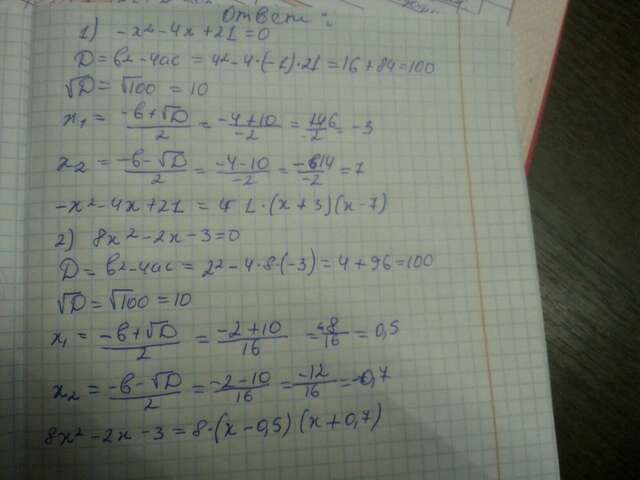 Ответ:
1) -x²-4x+21=0
D=b²-4ac=4²-4·(-1)·21=16+84=100
√D=√100=10
x₁=(-b+√D)/2=(-4+10)/-2=6/-2=-3
x₂=(-b-√D)/2=(-4-10)/-2=-14/-2=7
-x²-4x+21=1·(x+3)(x-7)
2) 8x²-2x-3=0
D=b²-4ac=2²-4·8·(-3)=4+96=100
√D=√100=10
x₁=(-b+√D)/2=(-2+10)/16=8/16=0,5
x₂=(-b-√D)/2=(-2-10)/16=-12/16=-0,7
8x²-2x-3=8·(x-0,5)(x+0,7)